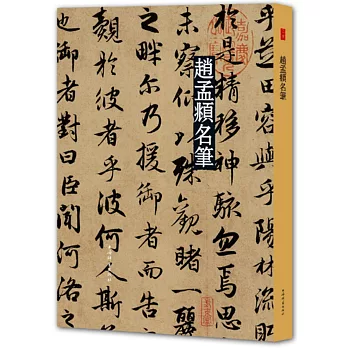 乎芝田容與乎陽林流眄
於是精移神駭忽焉思
未察仰以殊觀睹一麗
趙孟頫名筆
之畔尔乃援御者而告
覿於彼者乎彼何人斯
者對曰臣聞河洛之
趙孟頫名筆